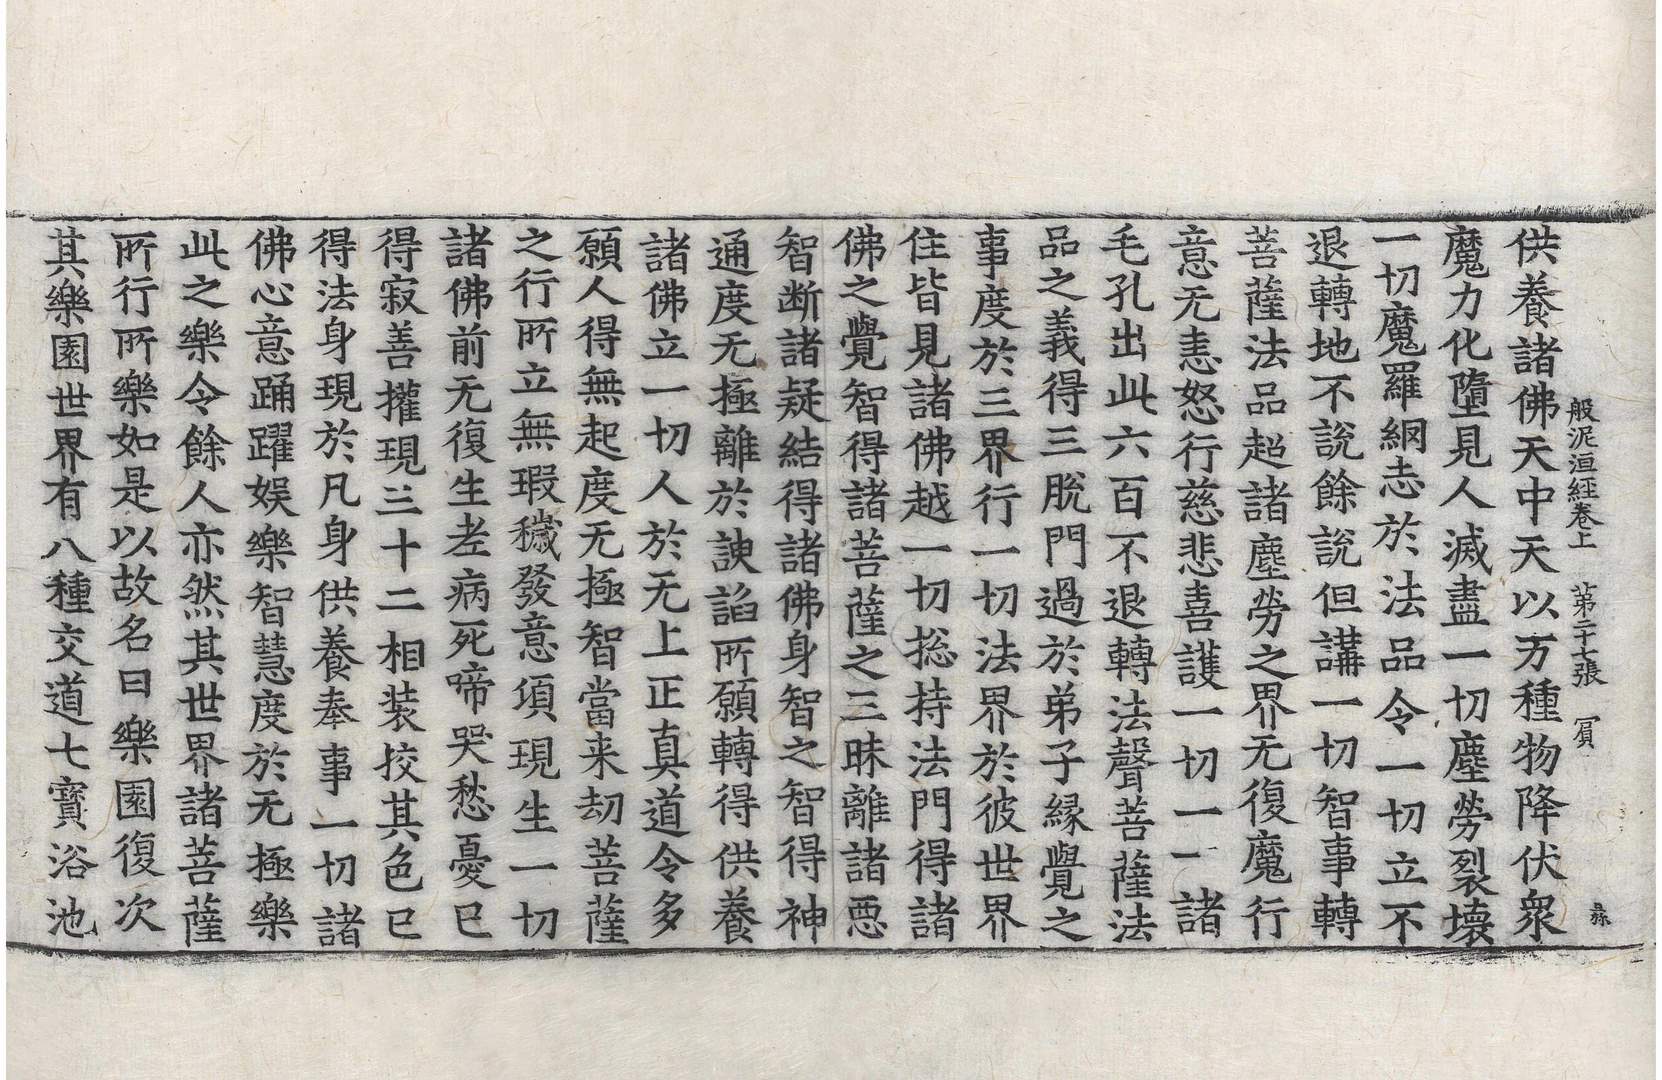 般泥洹経卷上 第二十七張 賔 㣇
供養諸佛天中天以万種物降伏衆
魔力化墮見人滅盡一切塵勞裂壞
一切魔羅網志於法品令一切立不
退轉地不說餘說但講一切智事轉
菩薩法品超諸塵勞之界无復魔行
意无恚怒行慈悲喜護一切一一諸
毛孔出此六百不退轉法聲菩薩法
品之義得三脫門過於弟子縁覺之
事度於三界行一切法界於彼世界
住皆見諸佛越一切㧾持法門得諸
佛之覺智得諸菩薩之三昧離諸惡
智断諸疑結得諸佛身智之智得神
通度无極離於諛諂所願轉得供養
諸佛立一切人於无上正真道令多
願人得無起度无極智當来劫菩薩
之行所立無瑕穢發意須現生一切
諸佛前无復生老病死啼哭愁憂已
得寂善權現三十二相装挍其色已
得法身現於凡身供養奉事一切諸
佛心意踊躍娛樂智慧度於无極樂
此之樂令餘人亦然其世界諸菩薩
所行所樂如是以故名曰樂園復次
其樂園世界有八種交道七寳浴池